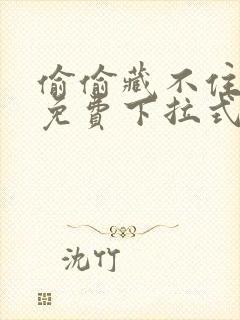 偷偷藏不住
免費下拉式
沈竹